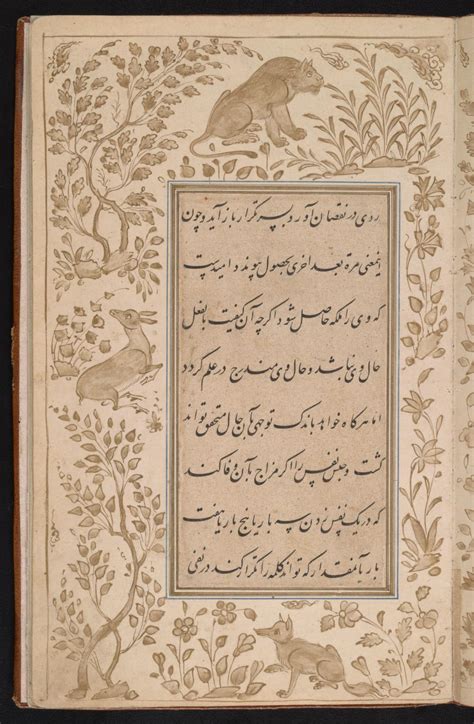 ردی در نقصان آورد بسر تکرار باز آید و چون
یمعنی مرة بعد اخری بحصول پیوندد امیدست
که وی را ملکه حاصل شود اگرچه آن کیفیت بالفعل
حال وی نباشد و حال وی مندرج در علم گردد
اما هرگاه خواهد باندک توجهی بآن حال متحقق تواند
گشت و حبس نفس را اگر مزاج بآن وفا کند
که در یک نفس زدن سه بار یا پنج بار یا هفت
بار یا آنمقدار که تواند کلمه را تکرار کند در نفی